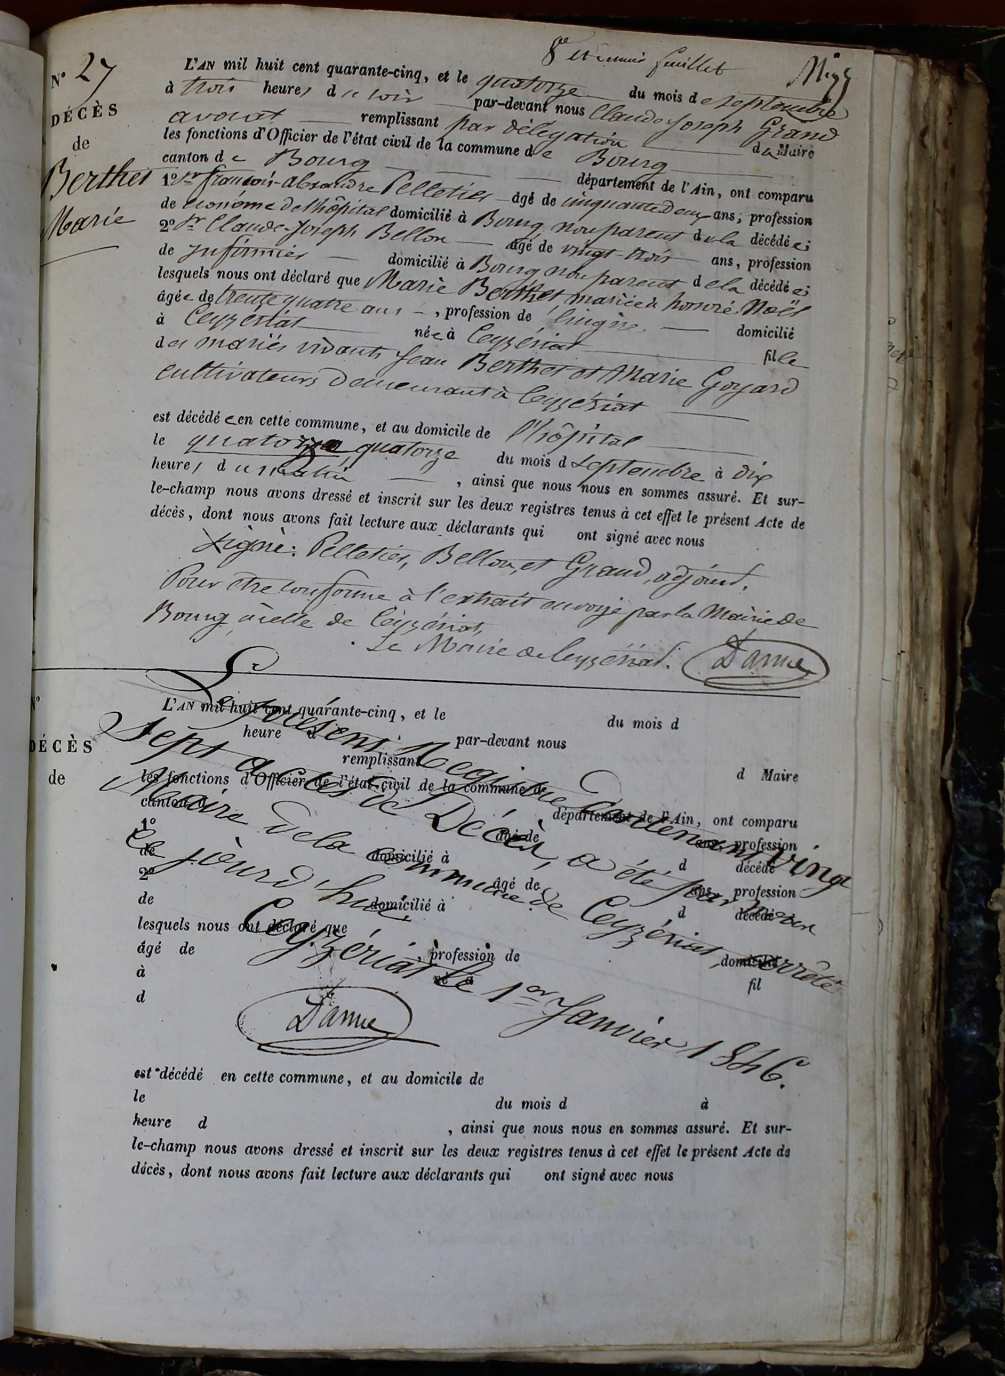 8e et dernier feuillet
N° 27
DÉCÈS
de
Berthet
Marie
L'AN mil huit cent quarante-cinq, et le quatorze du mois de septembre
à trois heures du soir par-devant nous Claude Joseph Grand
avocat remplissant par délégation du Maire
les fonctions d'Officier de l'état civil de la commune de Bourg
canton de Bourg département de l'Ain, ont comparu
1° Sr françois-alexandre Pelletier âgé de cinquante deux ans, profession
de économe de l'hôpital domicilié à Bourg non parent de la décédée;
2° Sr Claude-Joseph Bellon âgé de vingt-trois ans, profession
de infirmier domicilié à Bourg non parent de la décédée;
lesquels nous ont déclaré que Marie Berthet mariée à honoré Noël
âgée de trente quatre ans, profession de lingère domicilié
à Ceyzériat née à Ceyzériat fille
des mariés vivants Jean Berthet et Marie Goyard
cultivateurs demeurant à Ceyzériat
est décédée en cette commune, et au domicile de l'hôpital
le quatorze quatorze du mois d septembre à dix
heures du matin, ainsi que nous nous en sommes assuré. Et sur-
le-champ nous avons dressé et inscrit sur les deux registres tenus à cet effet le présent Acte de
décès, dont nous avons fait lecture aux déclarants qui ont signé avec nous
Signé: Pelletier, Bellon, et Grand, adjoint.
Pour être conforme à l'extrait envoyé par la Mairie de
Bourg à celle de Ceyzériat,
Le Maire de Ceyzériat.
N°
DÉCÈS
de
L'AN mil huit cent quarante-cinq, et le du mois d
heure d par-devant nous
remplissant d Maire
les fonctions d'Officier de l'état civil de la commune de
canton d département de l'Ain, ont comparu
1° âgé de ans, profession
de domicilié à d décédé
2° âgé de ans, profession
de domicilié à d décédé
lesquels nous ont déclaré que
âgé de , profession de domicilié
à né à fil
d
Le présent Registre Contenant vingt
Sept actes de Décès, a été par nous
Maire de la commune de Ceyzériat, arrêté
ce jourd'hui.
Ceyzériat le 1er Janvier 1846.
est décédé en cette commune, et au domicile de
le du mois d à
heure d , ainsi que nous nous en sommes assuré. Et sur-
le-champ nous avons dressé et inscrit sur les deux registres tenus à cet effet le présent Acte de
décès, dont nous avons fait lecture aux déclarants qui ont signé avec nous